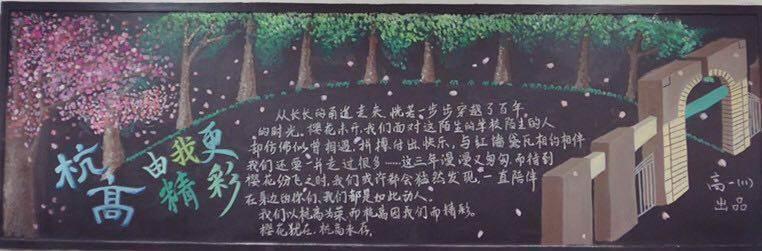 杭高
由我更
精彩
从长长的甬道走来,恍若一步步穿越了百年
的时光。樱花未开,我们面对这陌生的学校陌生的人
却仿佛似曾相遇。拼搏付出快乐,与红墙黛瓦相约相伴
我们还要一并走过很多……这三年漫漫又匆匆,而待到
樱花纷飞之时,我们或许都会猛然发现,一直陪伴
在身边的你们、我们都是如此动人。
我们以杭高为荣,而杭高因我们而精彩。
樱花犹在,杭高永存。
高一(11)
出品